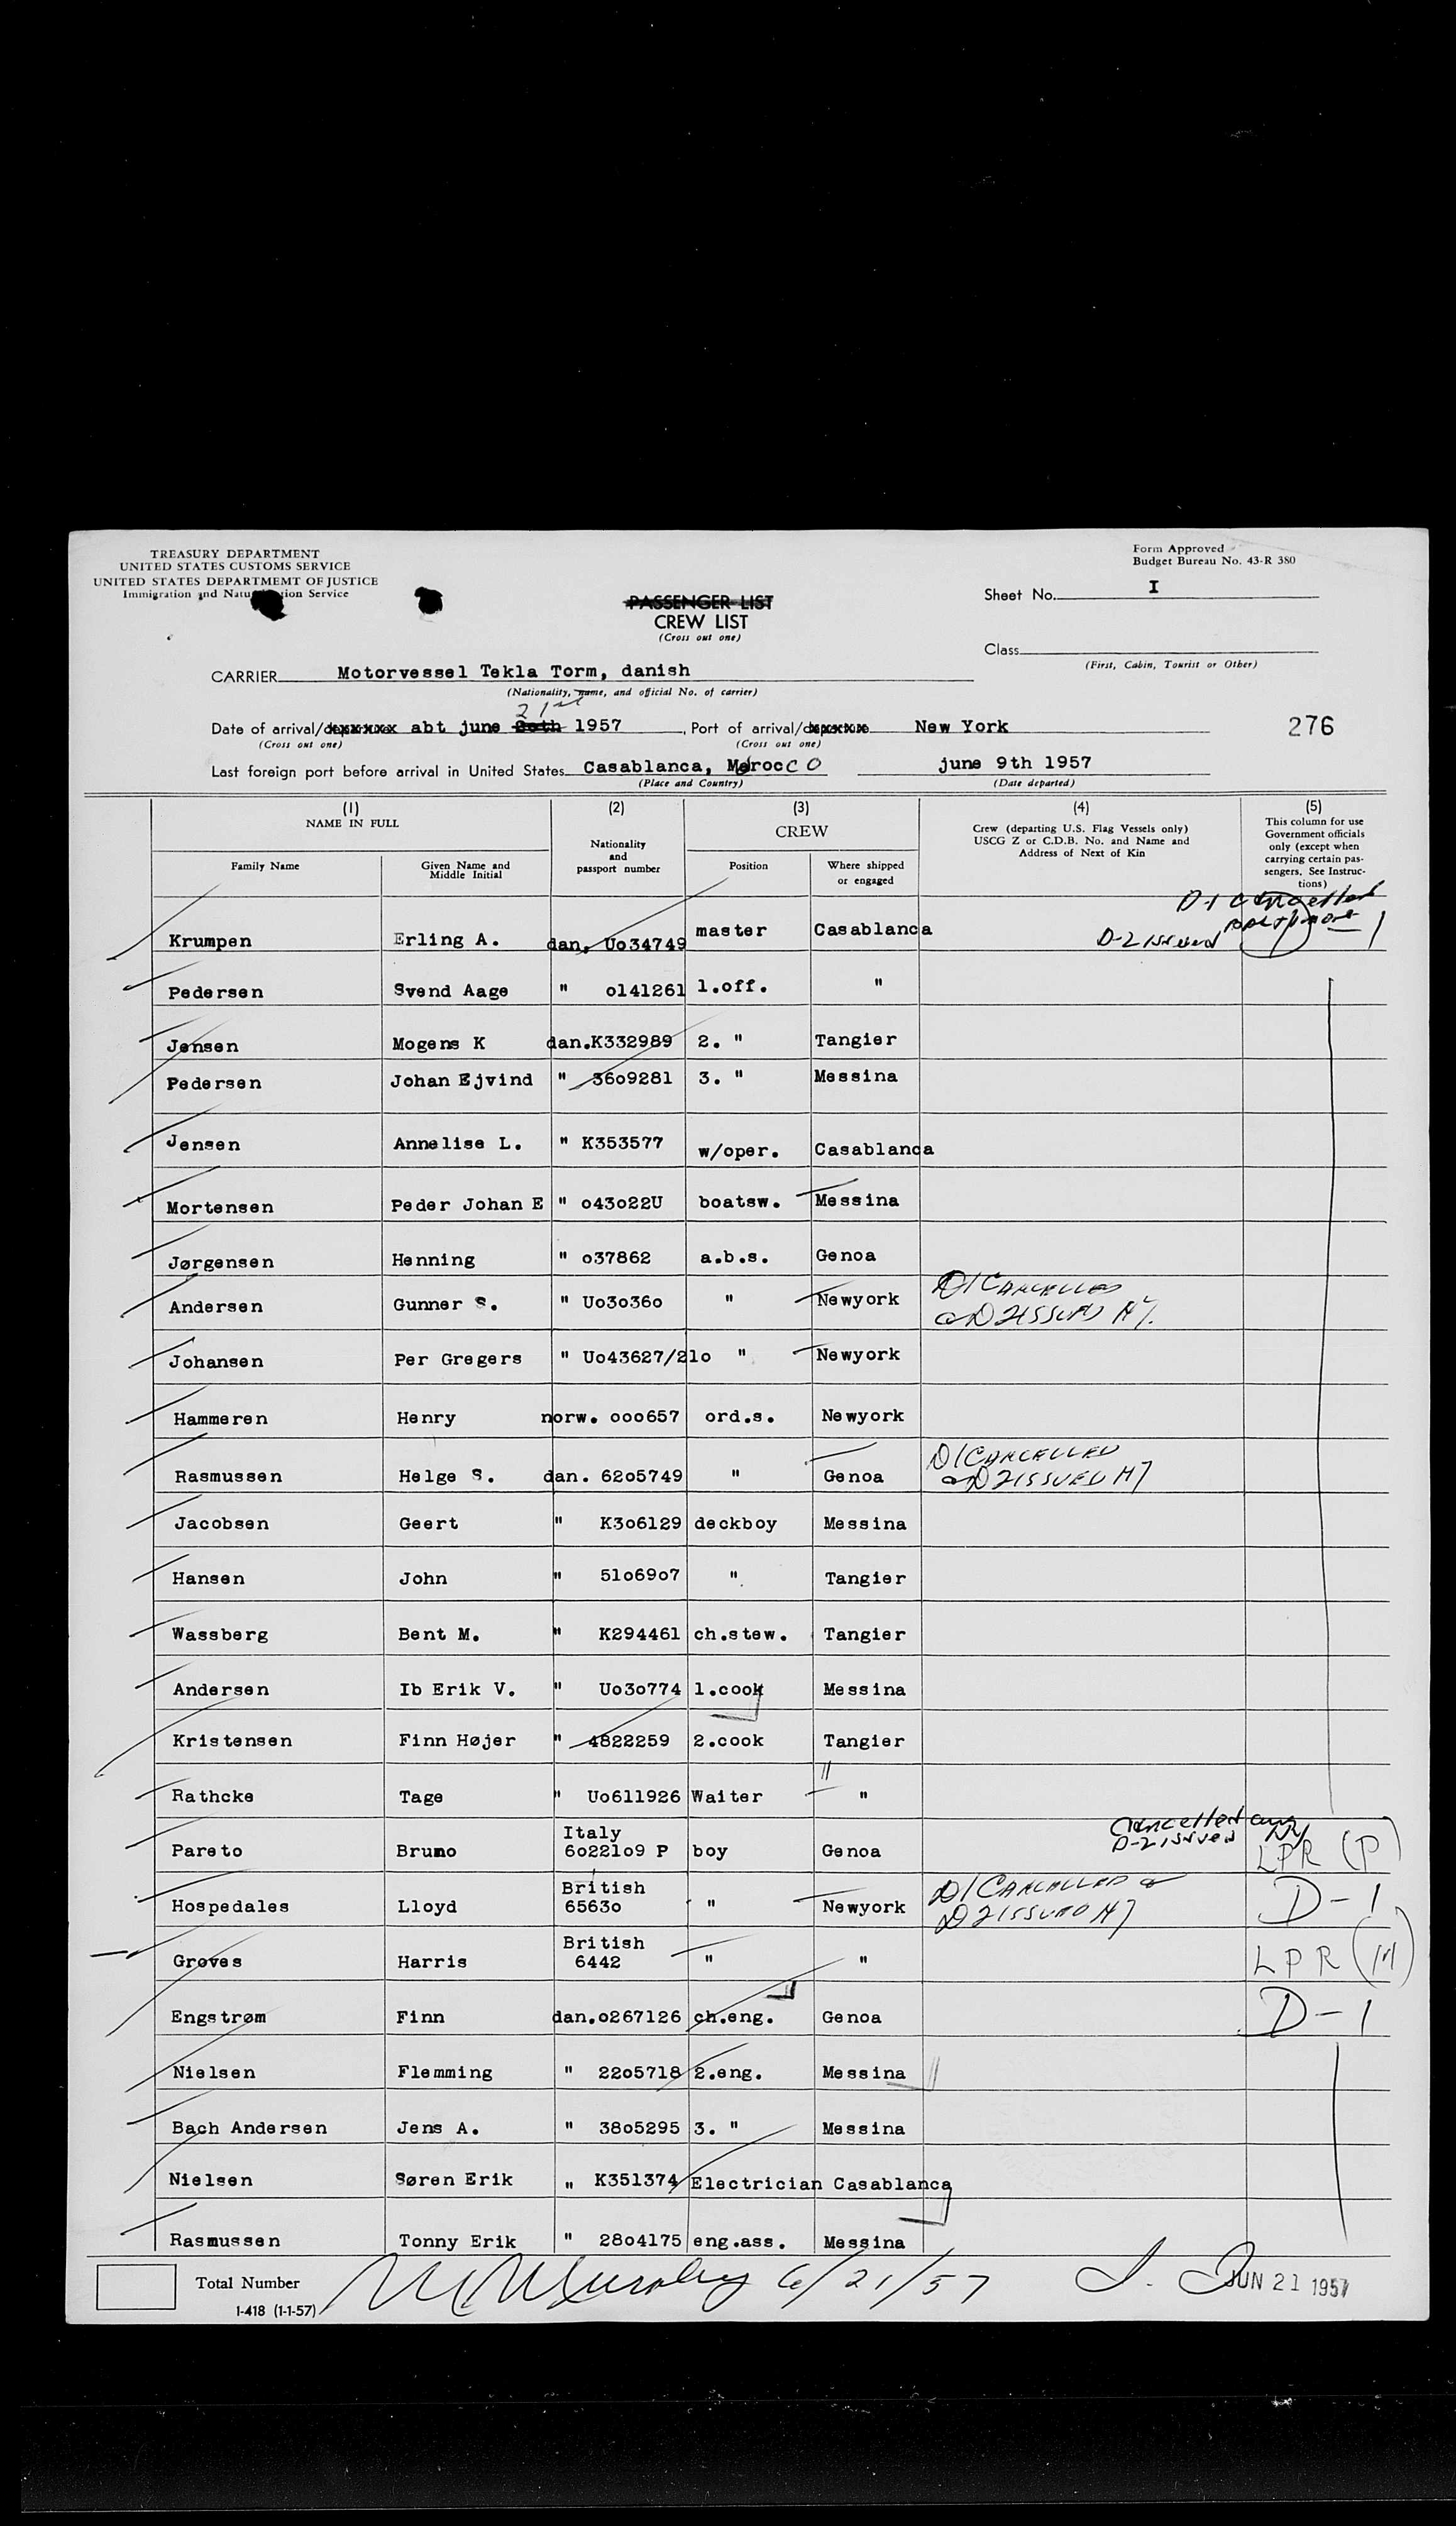 TREASURY DEPARTMENT
UNITED STATES CUSTOMS SERVICE
UNITED STATES DEPARTMEMT OF JUSTICE
Immigration and Natu tion Service
Form Approved
Budget Bureau No. 43-R 380
Sheet No. I
PASSENGER LIST
CREW LIST
(Cross out one)
Class
(First, Cabin, Tourist or Other)
CARRIER Motorvessel Tekla Torm, danish
(Nationality, name, and official No. of carrier)
21st
Date of arrival/departure abt june 20th 1957, Port of arrival/departure New York 276
(Cross out one) (Cross out one)
Last foreign port before arrival in United States Casablanca, Morocco june 9th 1957
(Place and Country) (Date departed)
(1) NAME IN FULL (2) Nationality and passport number (3) CREW (4) Crew (departing U.S. Flag Vessels only) USCG Z or C.D.B. No. and Name and Address of Next of Kin (5) This column for use Government officials only (except when carrying certain passengers, See Instructions)
Family Name Given Name and Middle Initial Position Where shipped or engaged
D-1 cancelled
Krumpen Erling A. dan. Uo34749 master Casablanca D-2 issued
Pedersen Svend Aage " o141261 1.off. "
Jensen Mogens K dan.K332989 2. " Tangier
Pedersen Johan Ejvind " 36o9281 3. " Messina
Jensen Annelise L. " K353577 w/oper. Casablanca
Mortensen Peder Johan E " o43o22U boatsw. Messina
Jørgensen Henning " o37862 a.b.s. Genoa
Andersen Gunner S. " Uo3o36o " Newyork D1 CANCELLED D2 ISSUED
Johansen Per Gregers " Uo43627/21o " Newyork
Hammeren Henry norw. ooo657 ord.s. Newyork
Rasmussen Helge S. dan. 62o5749 " Genoa D1 CANCELLED D2 ISSUED
Jacobsen Geert " K3o6129 deckboy Messina
Hansen John " 51o69o7 " Tangier
Wassberg Bent M. " K294461 ch.stew. Tangier
Andersen Ib Erik V. " Uo3o774 1.cook Messina
Kristensen Finn Højer " 4822259 2.cook Tangier
Rathcke Tage " Uo611926 Waiter "
Pareto Bruno Italy 6o221o9 P boy Genoa Cancelled D-2 issued LPR (P)
Hospedales Lloyd British 6563o " Newyork D1 CANCELLED D2 ISSUED D-1
Grøves Harris British 6442 " " LPR
Engstrøm Finn dan.o267126 ch.eng. Genoa D-1
Nielsen Flemming " 22o5718 2.eng. Messina
Bach Andersen Jens A. " 38o5295 3. " Messina
Nielsen Søren Erik " K351374 Electrician Casablanca
Rasmussen Tonny Erik " 28o4175 eng.ass. Messina
Total Number 6/21/57 JUN 21 1957
I-418 (1-1-57)